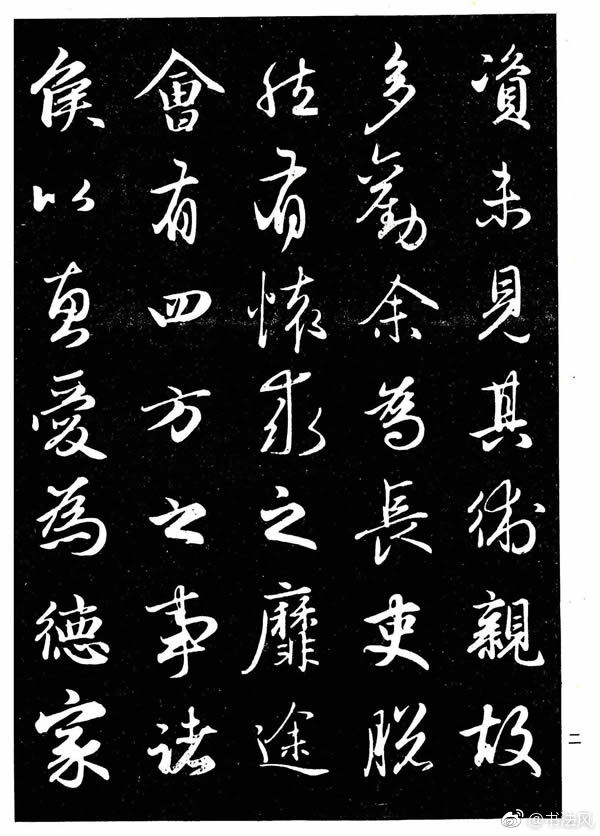 資未見其術親故
多勸余為長吏脱
然有懷求之靡途
會有四方之事諸
侯以惠愛為德家
二
@书法风